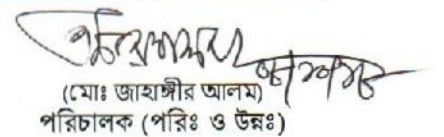 (মোঃ জাহাঙ্গীর আলম)
পরিচালক (পরিঃ ও উন্নঃ)